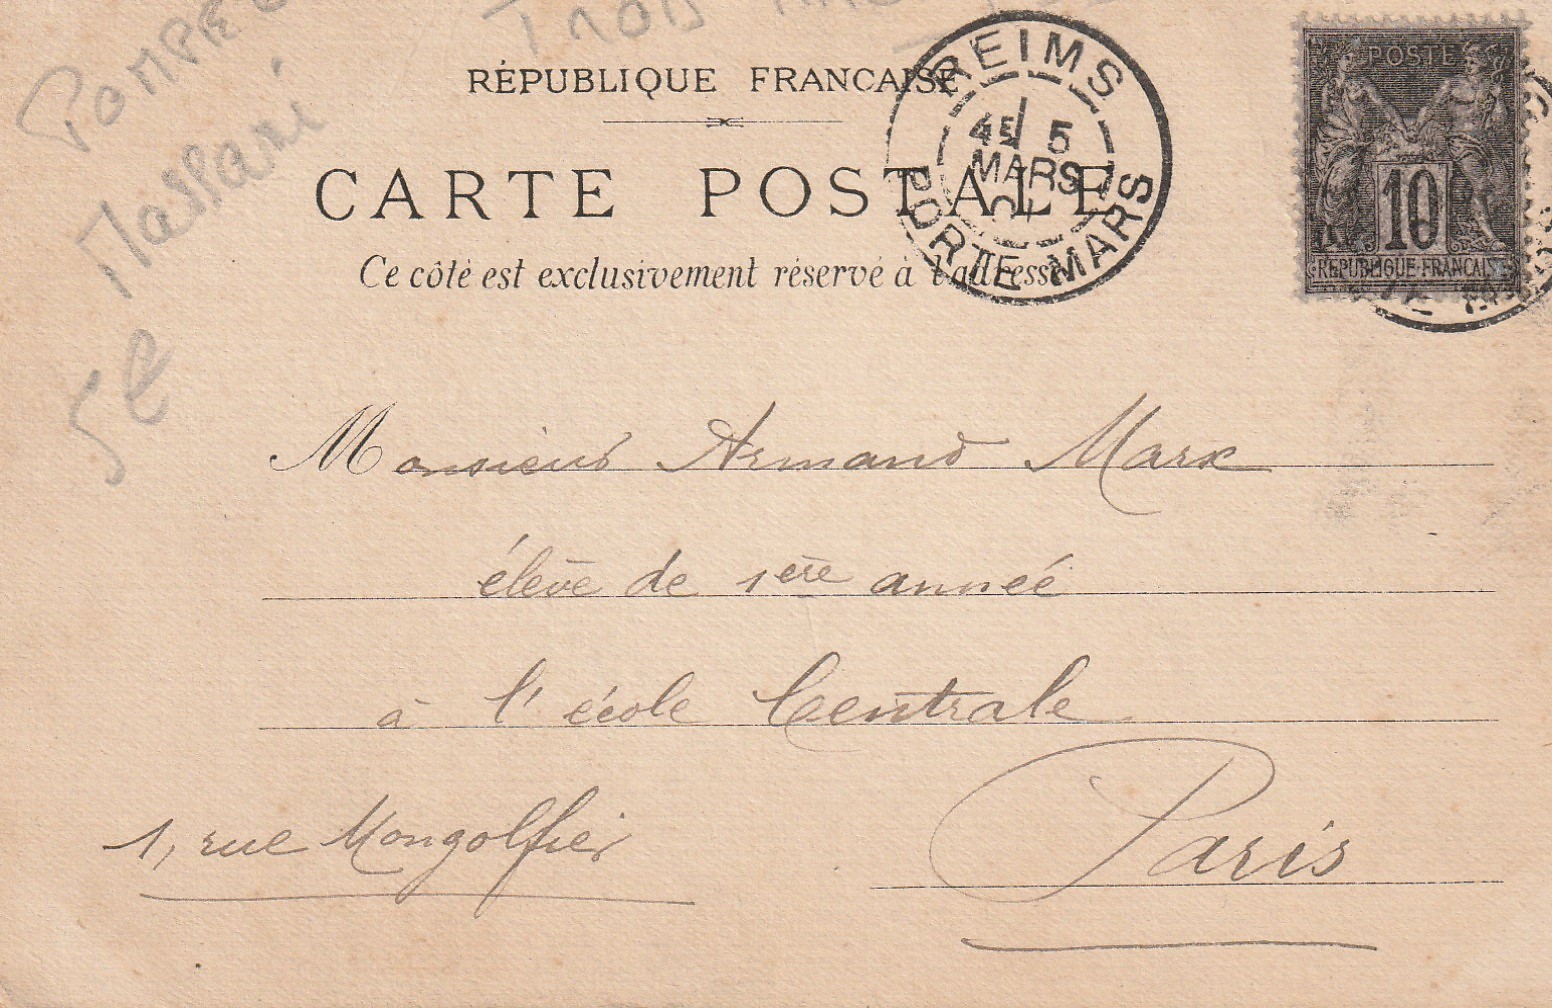 RÉPUBLIQUE FRANCAISE
CARTE POSTALE
Ce côté est exclusivement réservé à l'adresse
REIMS
4E 5
MARS
01
PORTE MARS
POSTE
10
REPUBLIQUE FRANCAISE
5e
Monsieur Armand Marx
élève de 1ère année
à l'école Centrale
1, rue Mongolfier
Paris